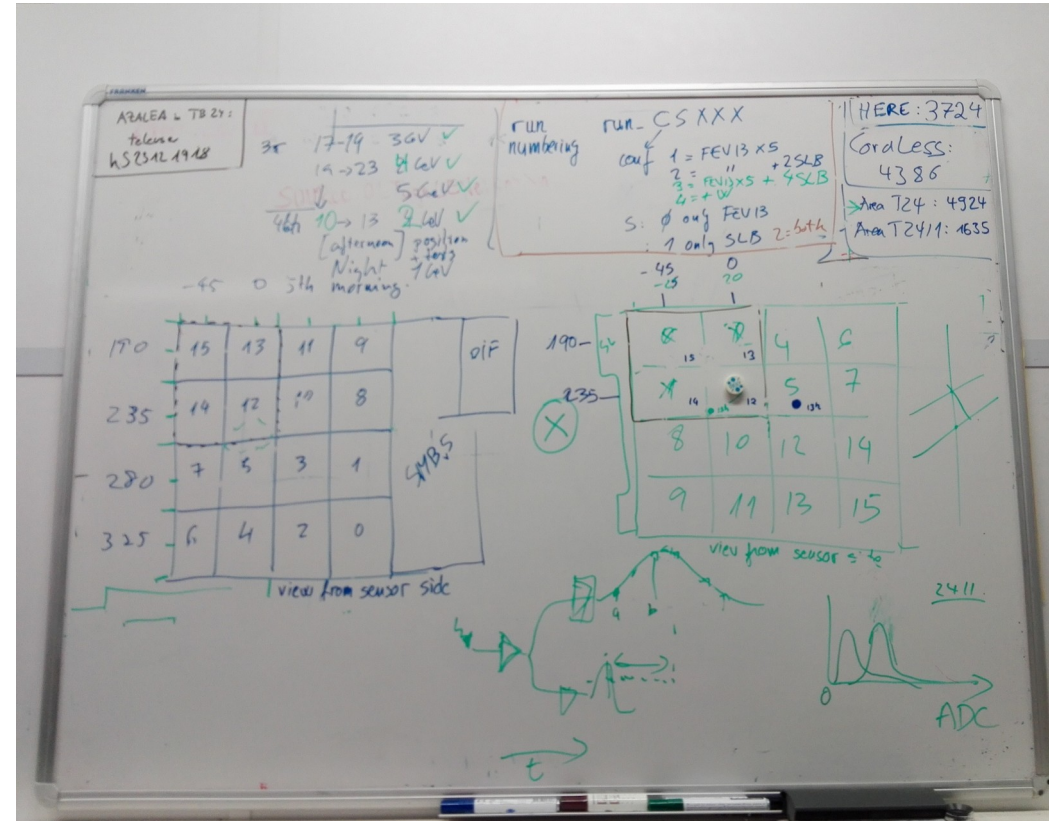 FRANKEN
AZALEA in TB 24:
telense
hS2312 1918
17-19 3GeV ✓
19→23 4 GeV ✓
5 GeV ✓
10→13 2 GeV ✓
[afternoon] position
Night 1 GeV
morning.
run
numbering
run_ CSXXX
conf 1 = FEV13 x5
2 = " +2SLB
3 = FEV13x5 + 4SLB
4 = + W
S: ø only FEV13
: 1 only SLB 2=both
HERE: 3724
Cordless:
4386
→Area T24 : 4924
Area T24/1: 1635
-45 0
190
235
280
325
15 13 11 9
14 12 10 8
7 5 3 1
6 4 2 0
DIF
SMB's
view from sensor side
-45 0
-25 20
190-
235-
15 13 4 6
14 12 5 7
8 10 12 14
9 11 13 15
view from sensor side
t
2411
0
ADC